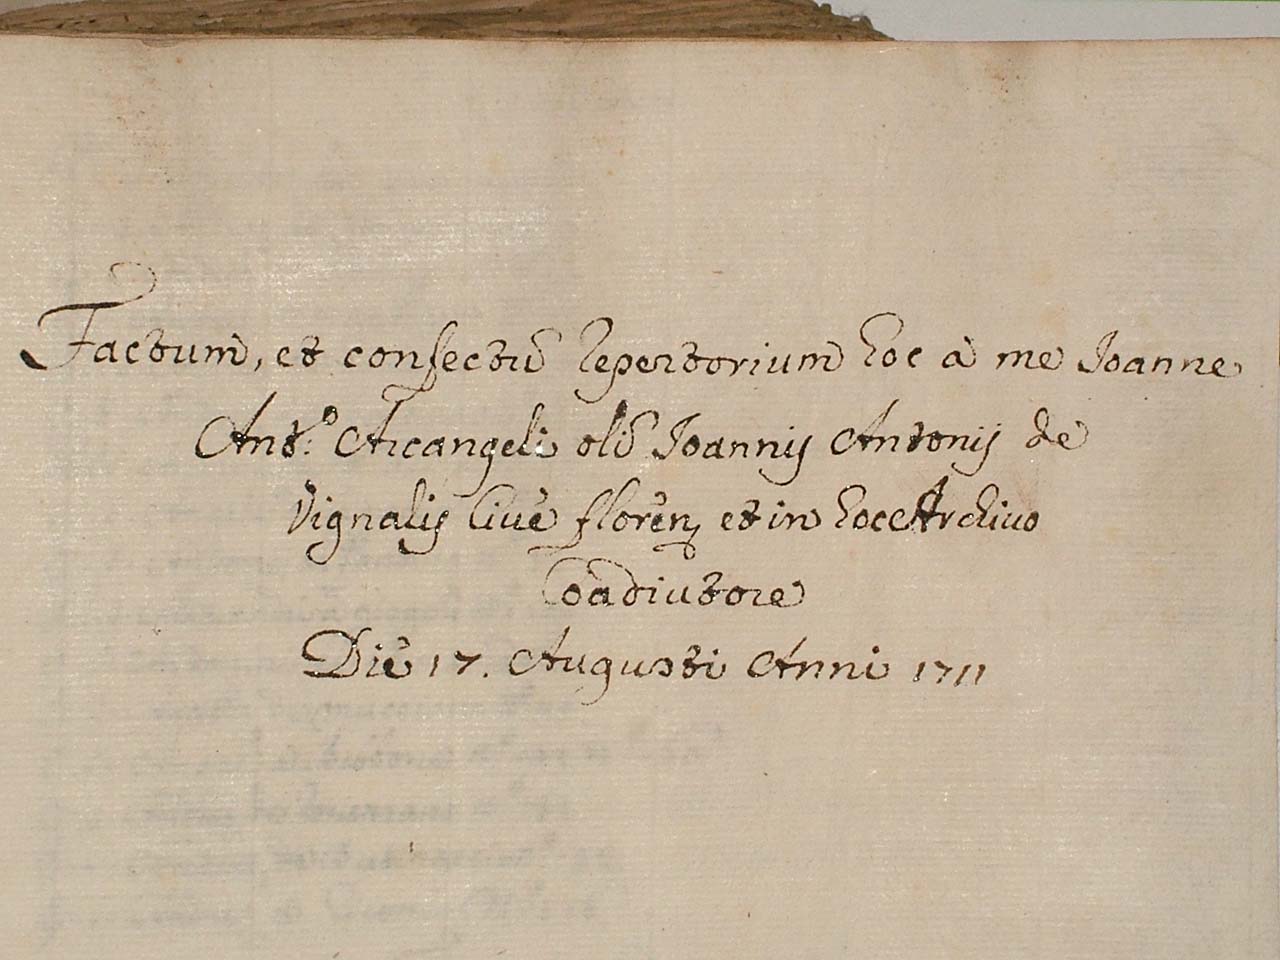 Factum, et confectũ Repertorium hoc à me Ioanne
Ant.º Arcangeli olĩ Ioannis Antonij de
Vignalis Ciuè florẽn, et in hoc Archiuo
Coadiutore
Die 17. Augusti Anni 1711